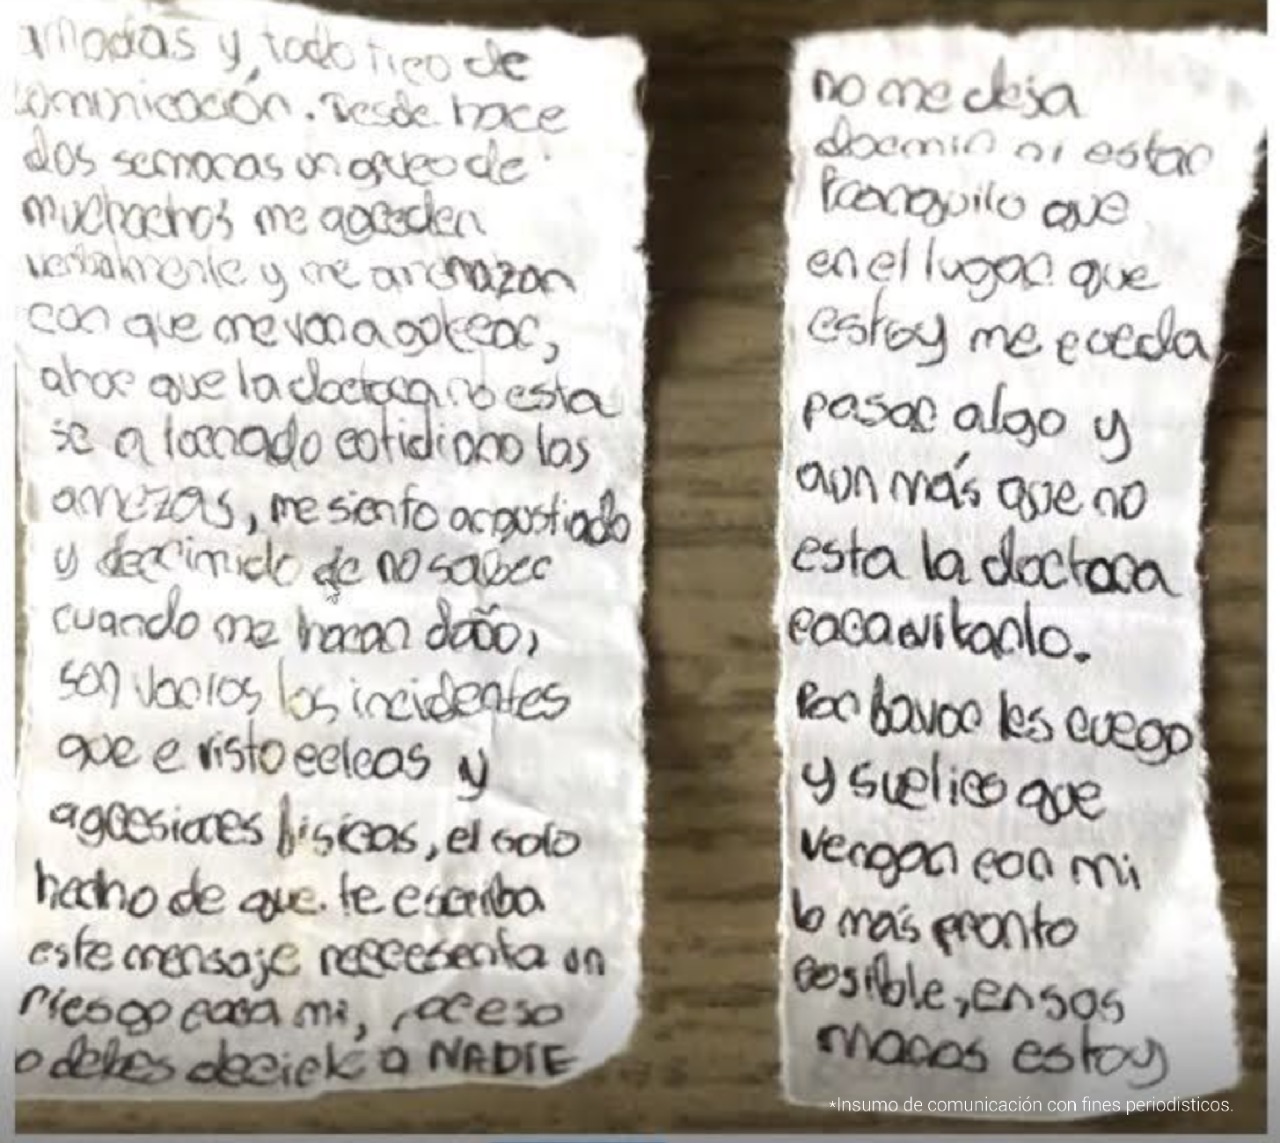 y todo tipo de
comunicación. Desde hace
dos semanas un grupo de
muchachos me agreden
verbalmente y me amenazan
con que me van a golpear,
ahor que la doctora no esta
se a tornado cotidiano las
amezas, me siento angustiado
y deprimido de no saber
cuando me haran daño,
son varios los incidentes
que e visto peleas y
agresiones fisicas, el solo
hecho de que te escriba
este mensaje representa un
riesgo para mi, por eso
o debes decirle a NADIE
no me deja
dormir ni estar
tranquilo que
en el lugar que
estoy me pueda
pasar algo y
aun más que no
esta la doctora
para evitarlo.
Por favor les ruego
y suplico que
vengan con mi
lo más pronto
posible, en sus
manos estoy
*Insumo de comunicación con fines periodísticos.